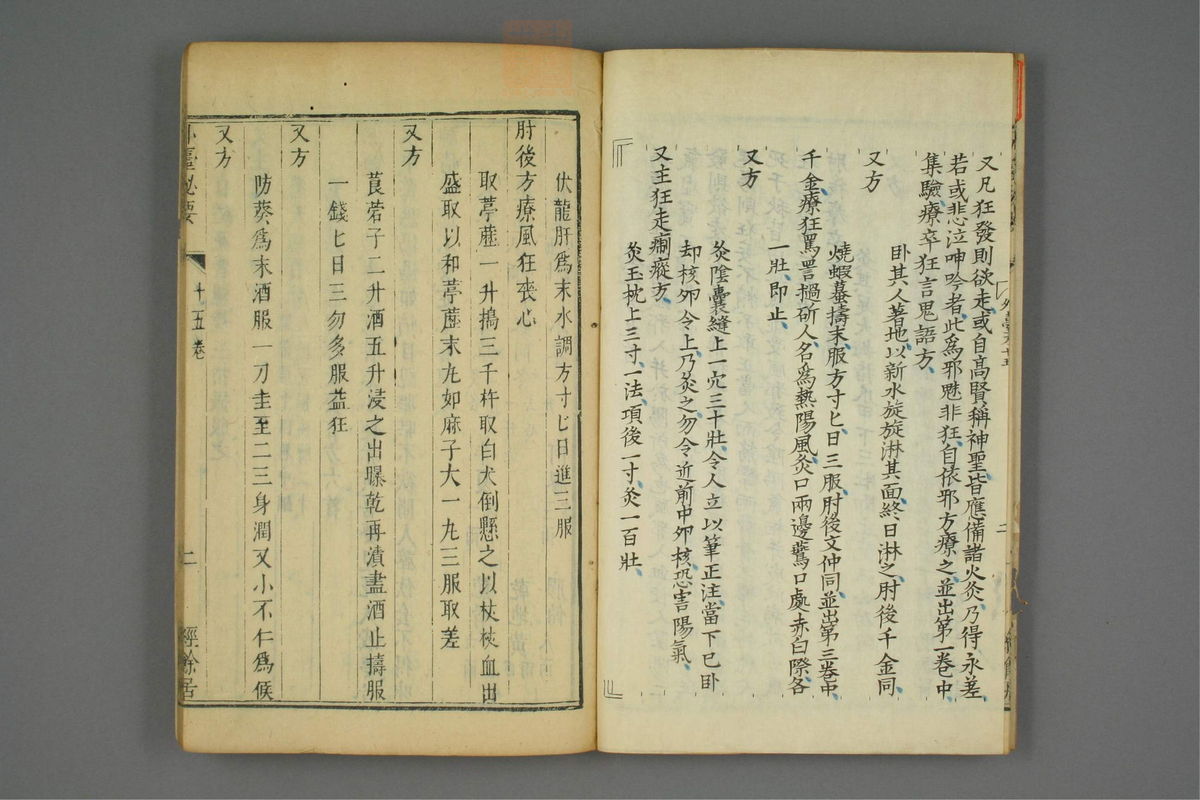 又凡狂發則欲走或自高賢稱神聖皆應備諸火灸乃得永差
若或悲泣呻吟者此為邪魅非狂自依邪方療之並出第一卷中
集驗療卒狂言鬼語方
臥其人著地以新水旋旋淋其面終日淋之肘後千金同
又方
燒蝦蟇擣末服方寸匕日三服肘後文仲同並出第三卷中
千金療狂罵詈撾斫人名為熱陽風灸口兩邊鷰口處赤白際各
一壯即止
又方
灸陰囊縫上一穴三十壯令人立以筆正注當下已臥
却核卵令上乃灸之勿令近前中卵核恐害陽氣
又主狂走癇瘲方
灸玉枕上三寸一法項後一寸灸一百壯
外臺卷十五
二
伏龍肝爲末水調方寸匕日進三服
肘後方療風狂喪心
取葶藶一升搗三千杵取白犬倒懸之以杖杖血出
盛取以和葶藶末丸如麻子大一丸三服取差
又方
莨菪子二升酒五升浸之出曝乾再漬盡酒止擣服
一錢匕日三勿多服益狂
又方
防葵爲末酒服一刀圭至二三身潤又小不仁爲候
又方
外臺秘要
十五卷
二
經餘居